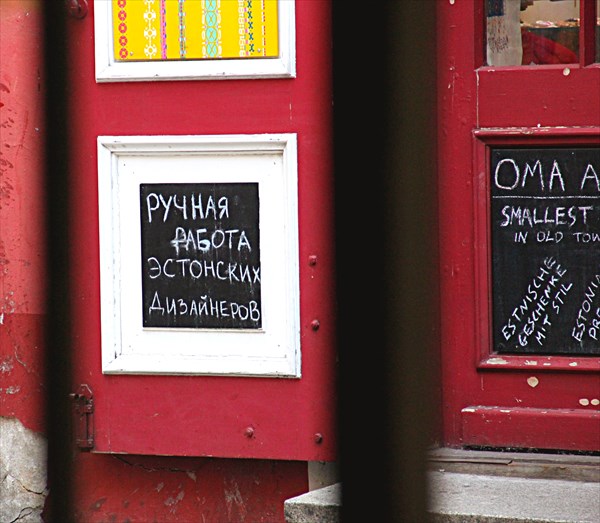 РУЧНАЯ
РАБОТА
ЭСТОНСКИХ
ДИЗАЙНЕРОВ
OMA A
SMALLEST
IN OLD TOW
ESTNISCHE
GESCHENKE
MIT STIL
ESTONIA
PRE